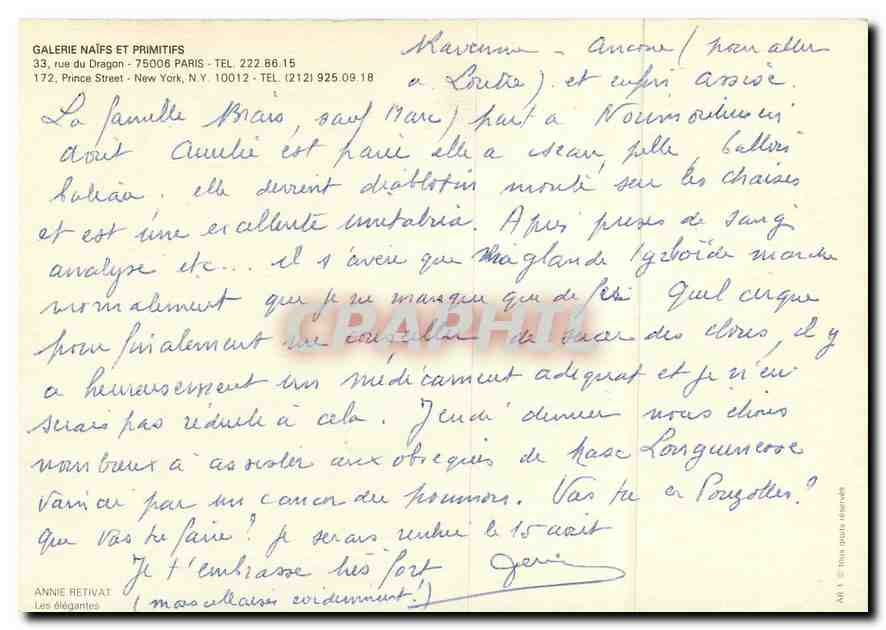 GALERIE NAÏFS ET PRIMITIFS
33, rue du Dragon - 75006 PARIS - TEL. 222.86.15
172, Prince Street - New York, N.Y. 10012 - TEL. (212) 925.09.18
Ravenne - Ancone (pour aller
a ) et enfin assise.
La famille sauf Marc) part à
août Amélie est parée elle a seau, pelle, ballon
bateau. elle devient diablotin monte sur les chaises
et est une excellente Après prises de sang,
analyse etc... il s'avère que ma glande tyroïde marche
normalement que je ne manque que de fer Quel cirque
pour finalement me conseiller de sucer des clous, il y
a heureusement un médicament adéquat et je n'en
serais pas réduite à cela. Jeudi dernier nous étions
nombreux à assister aux obsèques de
vaincu par un cancer du poumon. Vas tu à Pouzolles?
que vas tu faire? je serais rentrée le 15 août
Je t'embrasse très fort
(marseillaises évidemment!)
ANNIE RETIVAT
Les élégantes
AR 1 © tous droits réservés
CPAPHIL